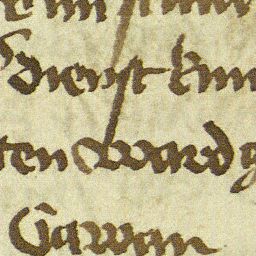 dienst kun
ten ward g
Gawan